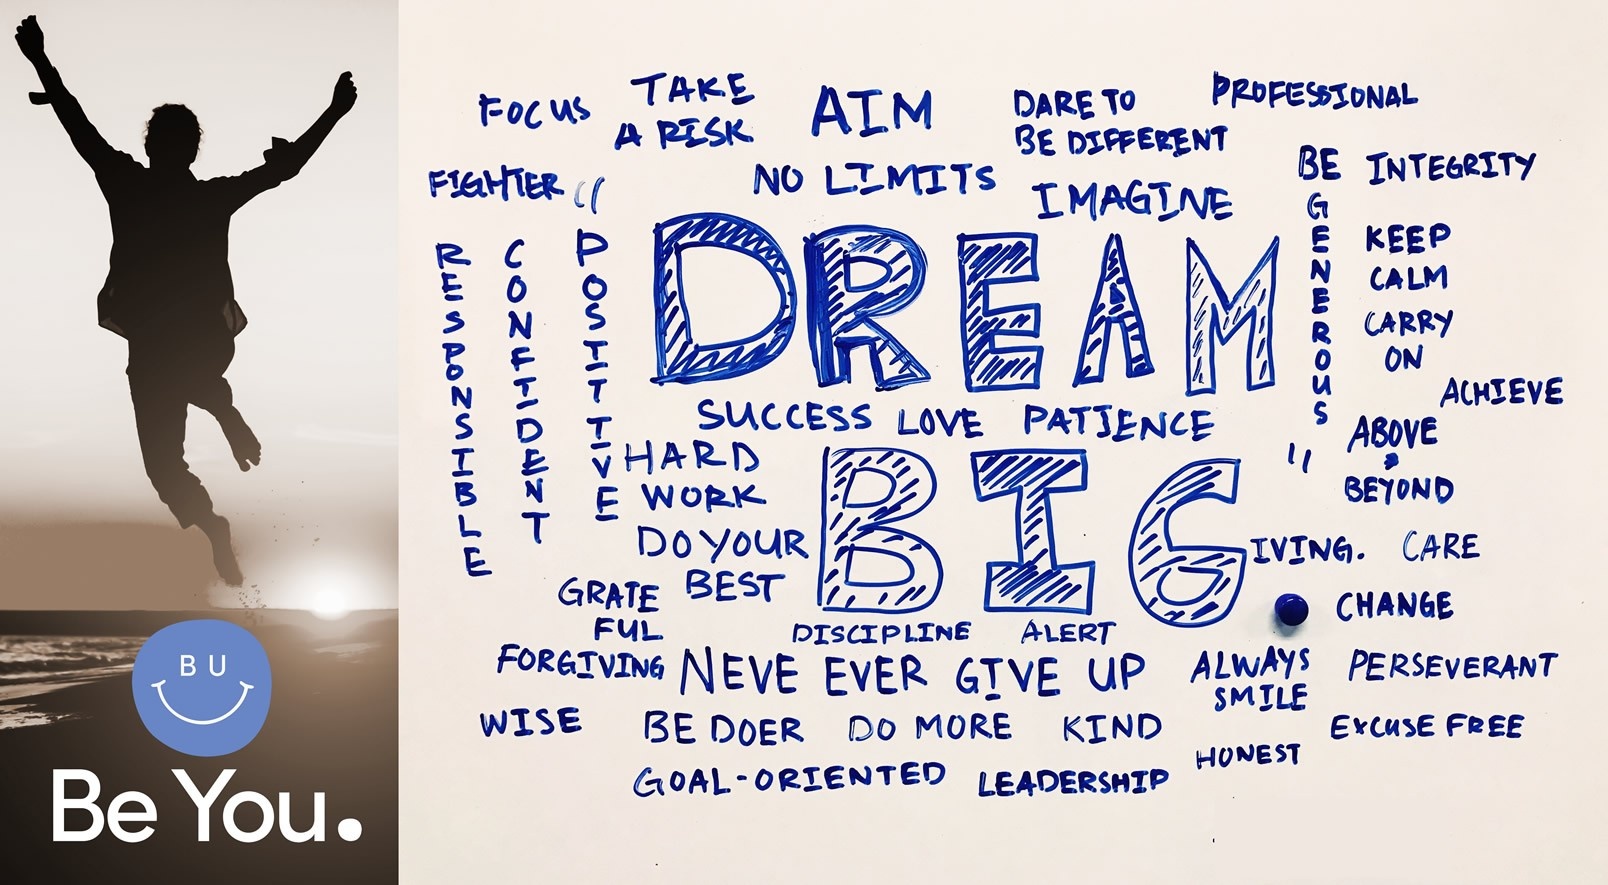 B U
Be You.
FOCUS
TAKE
A RISK
AIM
DARE TO
BE DIFFERENT
PROFESSIONAL
FIGHTER
NO LIMITS
IMAGINE
BE
GENEROUS
INTEGRITY
RESPONSIBLE
CONFIDENT
POSITTIVE
DREAM
KEEP
CALM
CARRY
ON
ACHIEVE
SUCCESS LOVE PATIENCE
ABOVE
&
BEYOND
HARD
WORK
DO YOUR
BEST
BIG
IVING. CARE
GRATE
FUL
CHANGE
DISCIPLINE ALERT
FORGIVING
NEVE EVER GIVE UP
ALWAYS
SMILE
PERSEVERANT
WISE
BE DOER
DO MORE
KIND
EXCUSE FREE
HONEST
GOAL-ORIENTED
LEADERSHIP